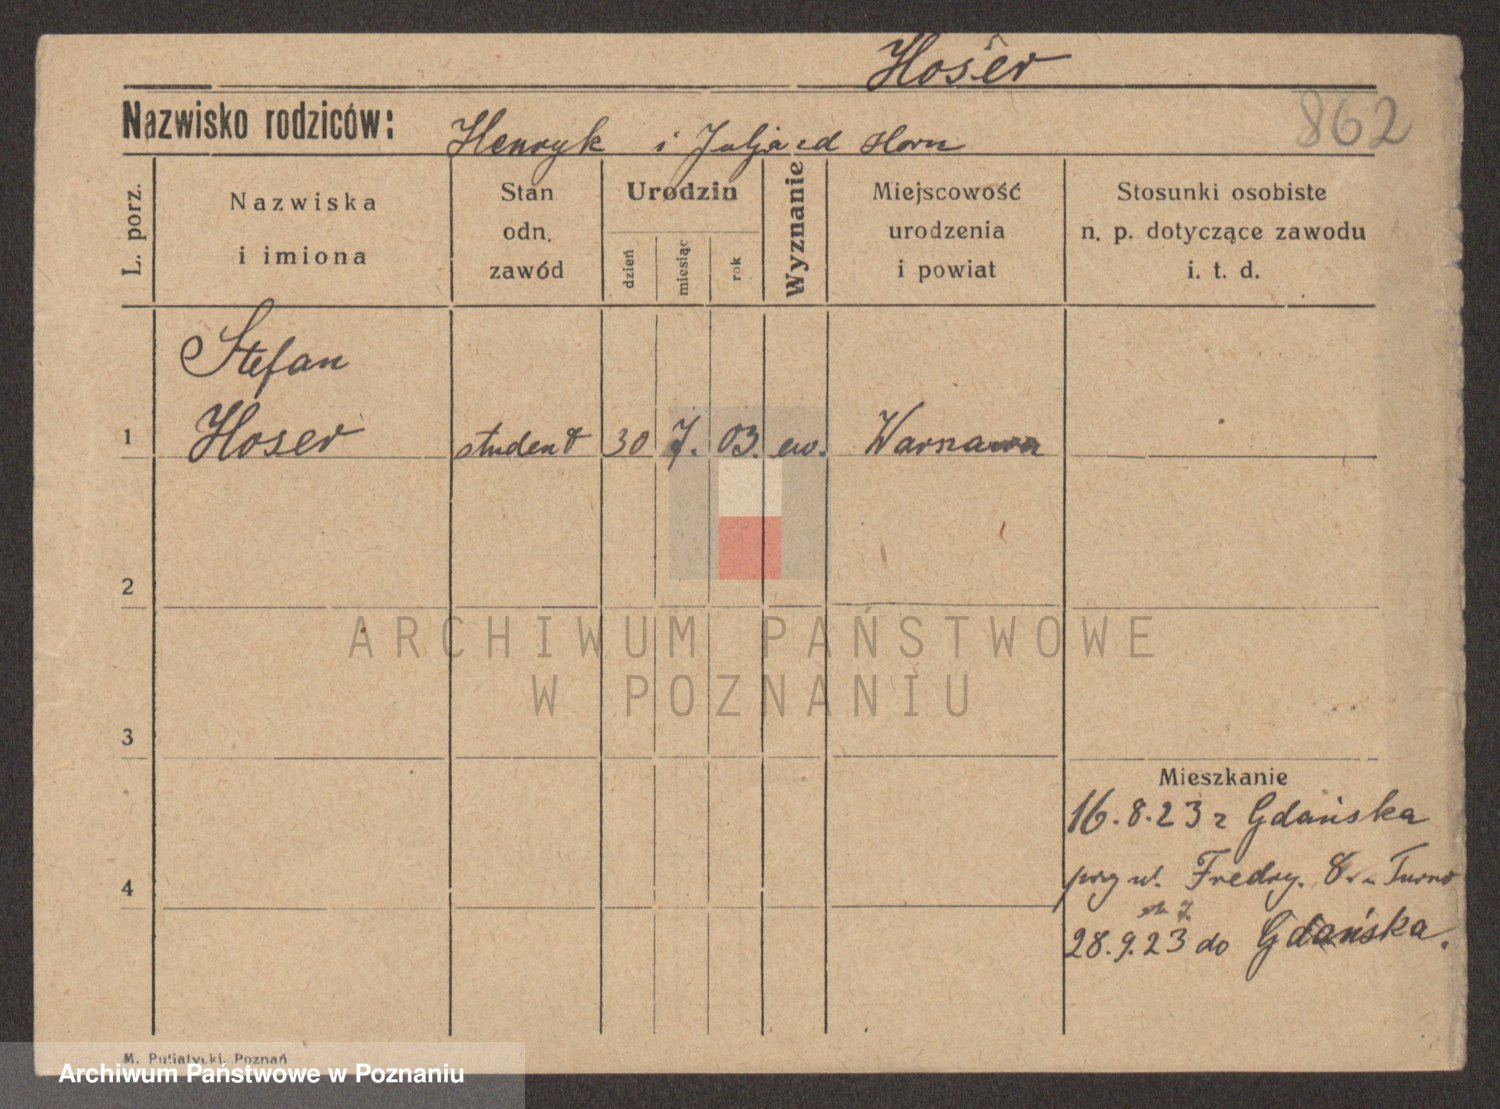 Hoser
862
Nazwisko rodziców: Henryk i Julja z d Horn
L. porz.
Nazwiska
i imiona
Stan
odn.
zawód
Urodzin
dzień
miesiąc
rok
Wyznanie
Miejscowość
urodzenia
i powiat
Stosunki osobiste
n. p. dotyczące zawodu
i. t. d.
Stefan
1 Hoser student 30 7. 03. ew. Warszawa
2
ARCHIWUM PAŃSTWOWE
W POZNANIU
3
Mieszkanie
16.8.23 z Gdańska
4
przy ul. Fredry. 8 Turno
28.9.23 do Gdańska.
M. Putiatycki, Poznań
Archiwum Państwowe w Poznaniu